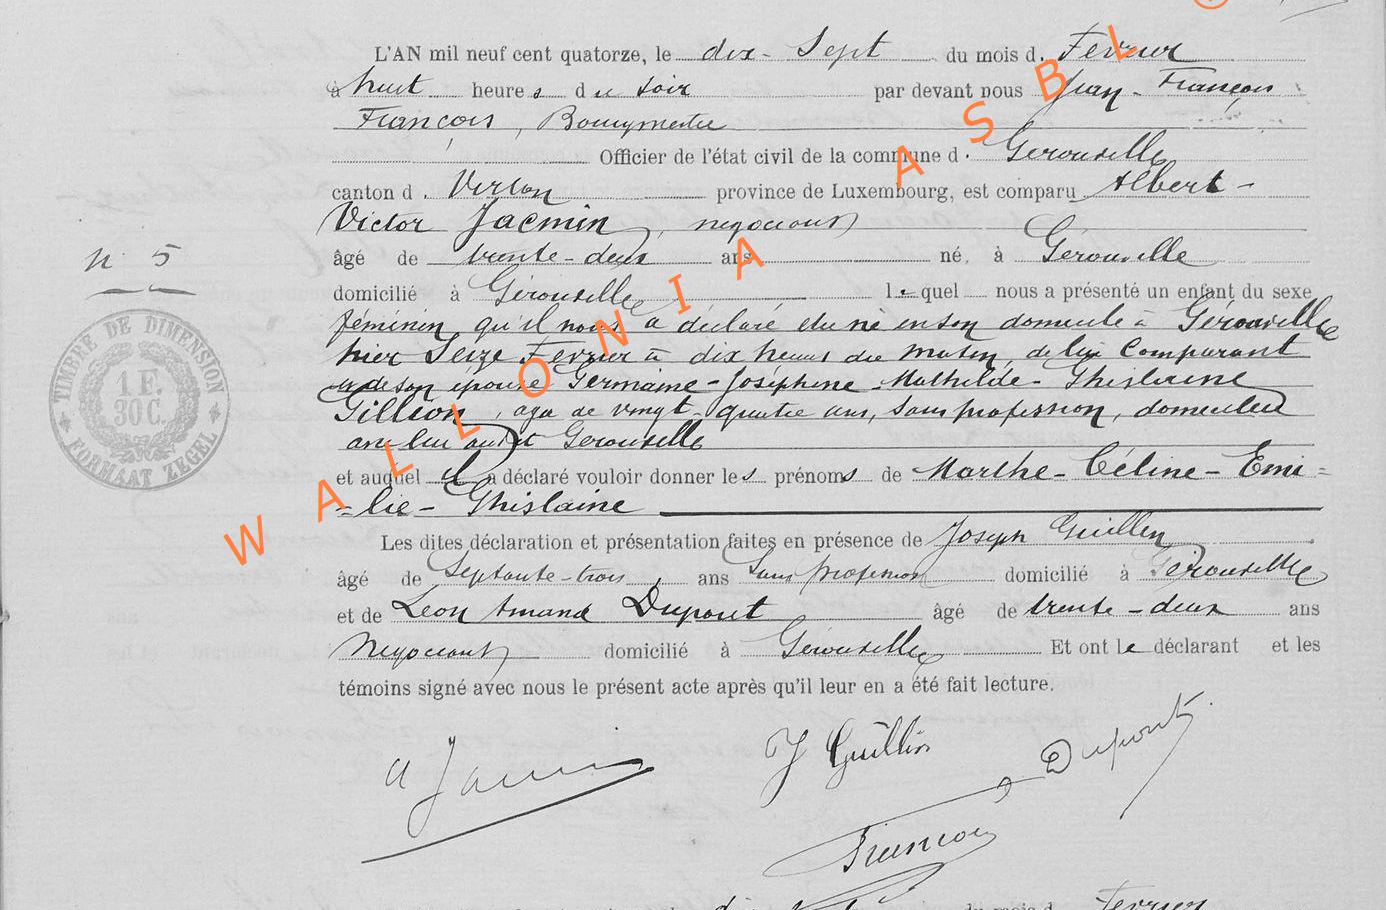 L'AN mil neuf cent quatorze, le dix-Sept du mois d. Fevrier
à huit heures du soir par devant nous Jean-François
François, Bourgmestre
Officier de l'état civil de la commune d. Gerouville
canton d. Virton province de Luxembourg, est comparu Albert-
Victor Jacmin, negociant
n° 5
âgé de trente-deux ans né, à Gérouville
domicilié à Gérouville lequel nous a présenté un enfant du sexe
féminin qu'il nous a déclaré être né en son domicile à Gérouville
hier Seize Fevrier à dix heures du matin, de lui Comparant
et de son épouse Germaine-Joséphine-Mathilde-Ghislaine
Gillion, agée de vingt-quatre ans, sans profession, domiciliée
au lieu audit Gerouville
et auquel il a déclaré vouloir donner les prénoms de Marthe-Céline-Emi=
=lie-Ghislaine
Les dites déclaration et présentation faites en présence de Joseph Guillen
âgé de Septante-trois, ans Sans profession domicilié à Gérouville
et de Léon Amand Dupont âgé de trente-deux ans
Negociant domicilié à Gérouville Et ont le déclarant et les
témoins signé avec nous le présent acte après qu'il leur en a été fait lecture.
A Jacmin
J Guillin
Dupont
François
TIMBRE DE DIMENSION
1 F.
30 C.
FORMAAT ZEGEL
WALLONIA ASBL
du mois d. Fevrier